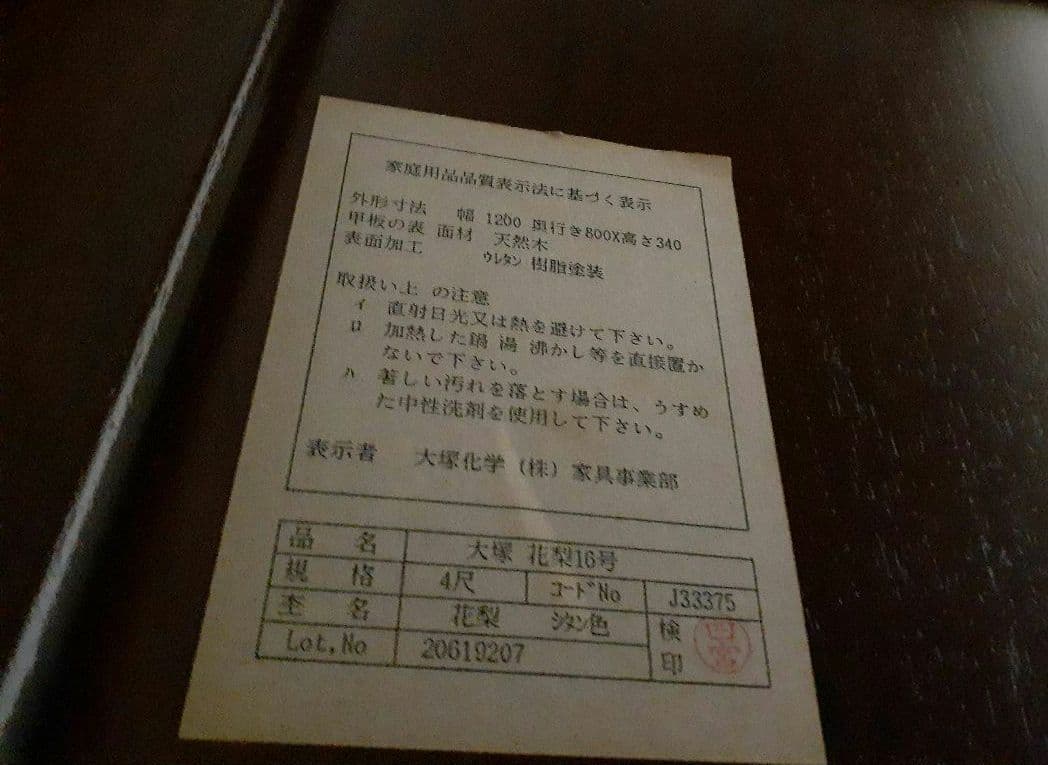 家庭用品品質表示法に基づく表示
外形寸法 幅 1200 奥行き800X高さ340
甲板の表 面材 天然木
表面加工 ウレタン 樹脂塗装
取扱い上 の注意
イ 直射日光又は熱を避けて下さい。
ロ 加熱した鍋 湯 沸かし等を直接置か
ないで下さい。
ハ 著しい汚れを落とす場合は、うすめ
た中性洗剤を使用して下さい。
表示者 大塚化学（株）家具事業部
品 名 大塚 花梨16号
規 格 4尺 コードNo J33375
杢 名 花梨 シタン色 検
印
Lot,No 20619207